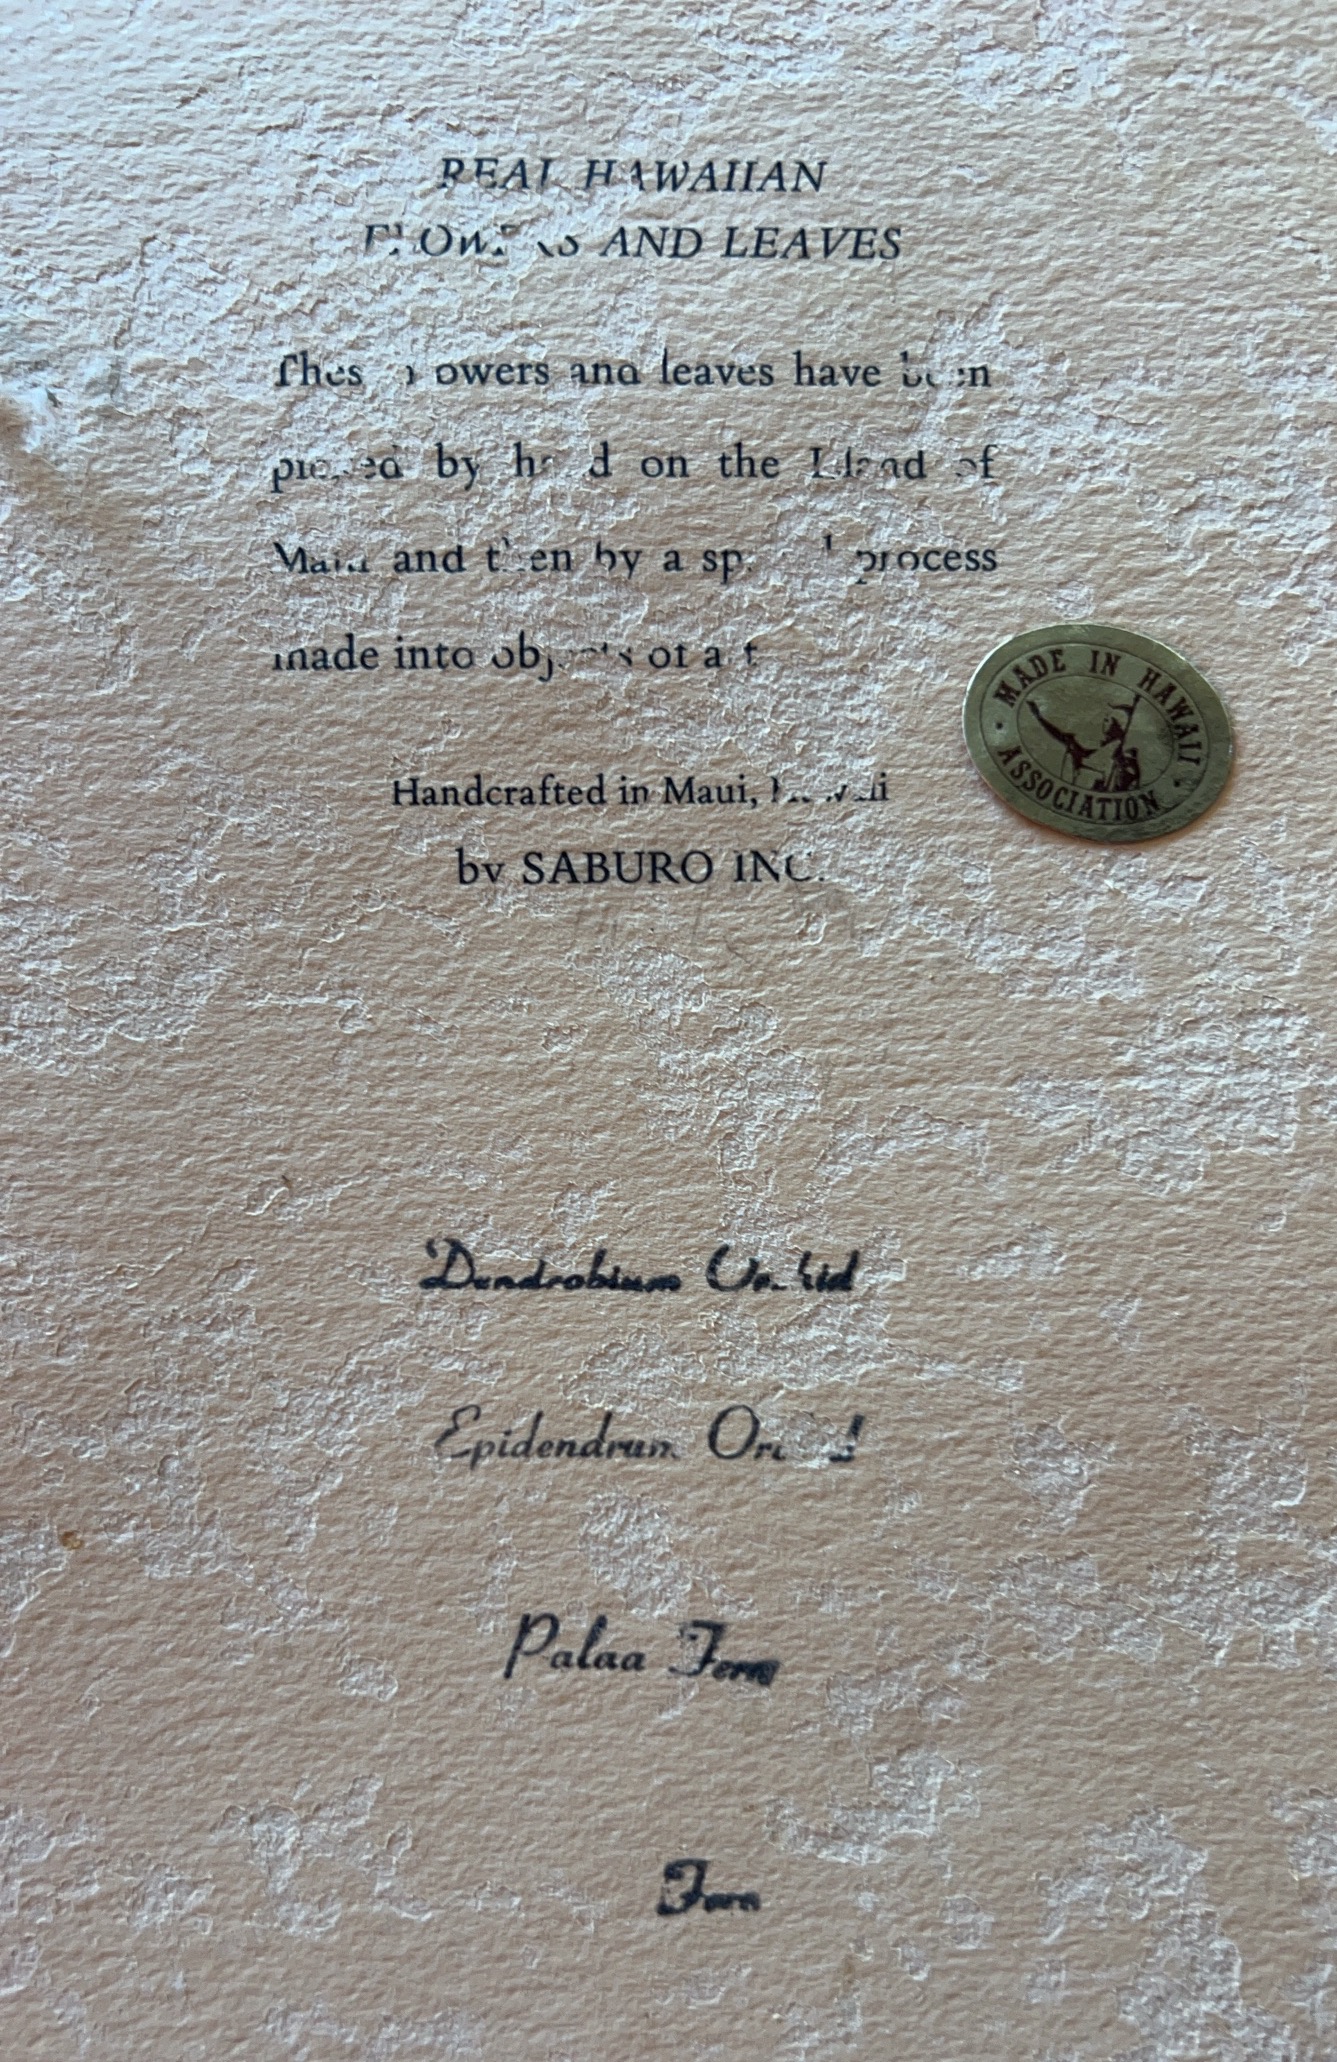 REAL HAWAIIAN
FLOWERS AND LEAVES
These flowers and leaves have been
picked by hand on the Island of
Maui and then by a special process
made into objects of art
Handcrafted in Maui, Hawaii
by SABURO INC.
MADE IN HAWAII
ASSOCIATION
Dendrobium Orchid
Epidendrum Orchid
Palaa Fern
Fern